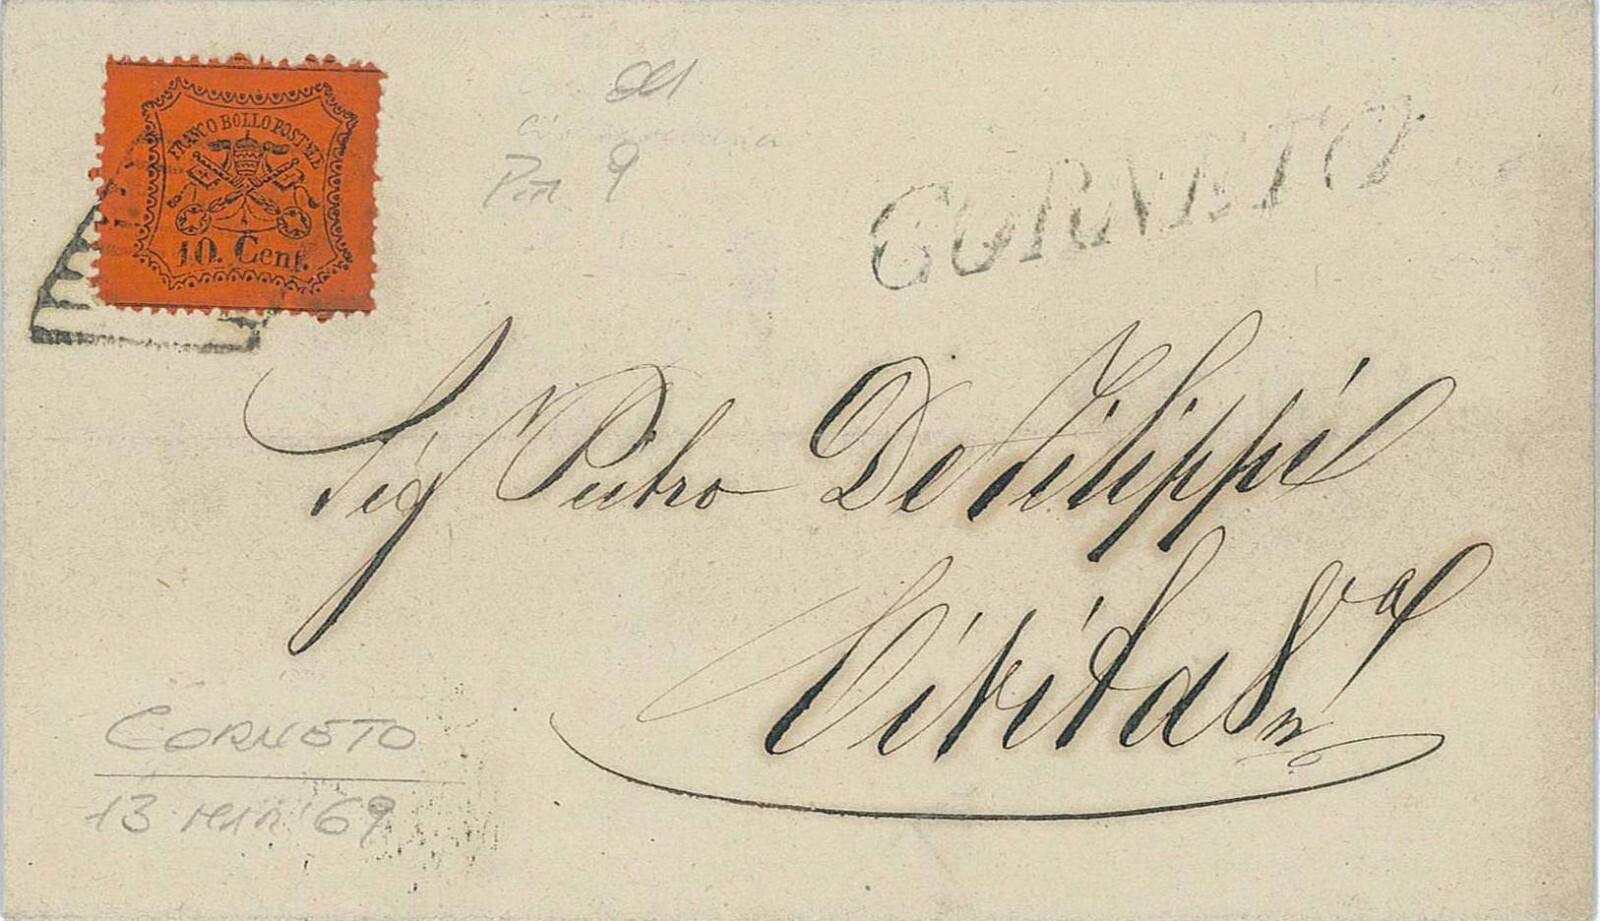 FRANCO BOLLO POSTALE
10. Cent.
Pon 9
CORNETO
Sig Pietro De Filippi
Civita
CORNETO
13 '69